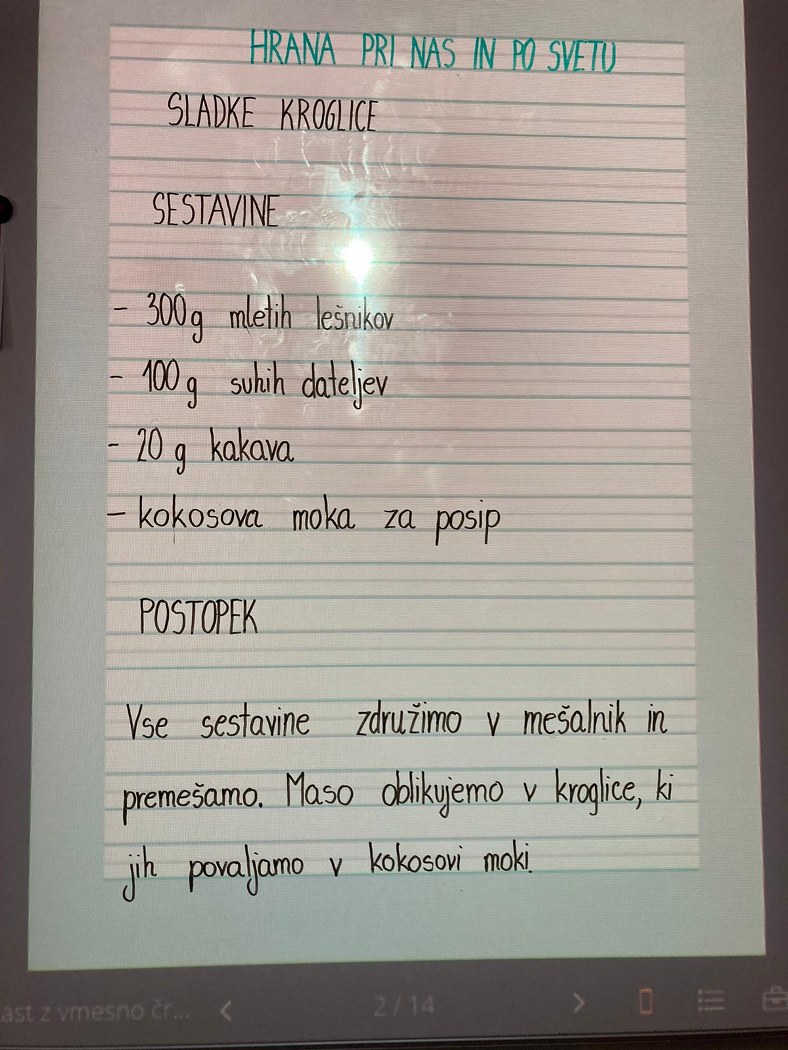 HRANA PRI NAS IN PO SVETU
SLADKE KROGLICE
SESTAVINE
- 300g mletih lešnikov
- 100g suhih dateljev
- 20 g kakava
- kokosova moka za posip
POSTOPEK
Vse sestavine združimo v mešalnik in
premešamo. Maso oblikujemo v kroglice, ki
jih povaljamo v kokosovi moki.
ast z vmesno čr...
2 / 14